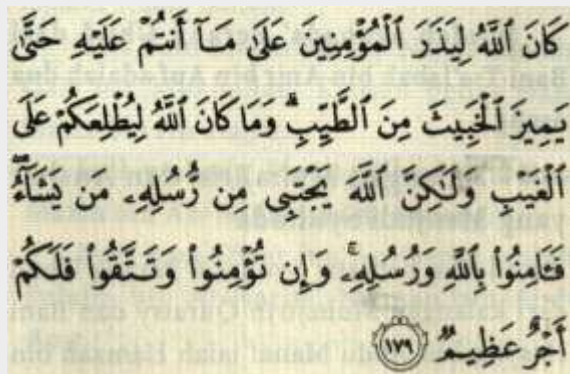 كَانَ ٱللَّهُ لِيَذَرَ ٱلْمُؤْمِنِينَ عَلَىٰ مَآ أَنتُمْ عَلَيْهِ حَتَّىٰ
يَمِيزَ ٱلْخَبِيثَ مِنَ ٱلطَّيِّبِ ۗ وَمَا كَانَ ٱللَّهُ لِيُطْلِعَكُمْ عَلَى
ٱلْغَيْبِ وَلَـٰكِنَّ ٱللَّهَ يَجْتَبِى مِن رُّسُلِهِۦ مَن يَشَآءُ ۖ
فَـَٔامِنُوا۟ بِٱللَّهِ وَرُسُلِهِۦ ۚ وَإِن تُؤْمِنُوا۟ وَتَتَّقُوا۟ فَلَكُمْ
أَجْرٌ عَظِيمٌ ١٧٩